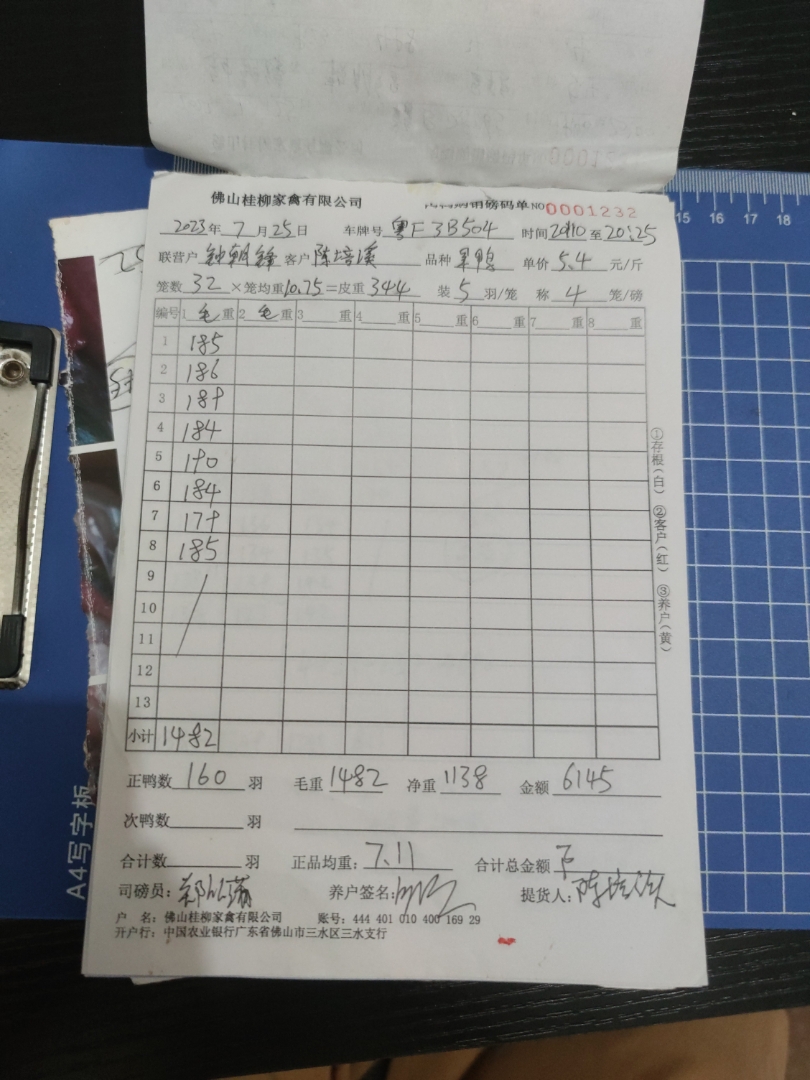 佛山桂柳家禽有限公司 购销磅码单 NO 0001232
2023年 7月25日 车牌号 粤F3B504 时间 20:10 至 20:25
联营户 钟朝锋 客户 陈培溪 品种 果鸭 单价 5.4 元/斤
笼数 32 ×笼均重 10.75 =皮重 344 装 5 羽/笼 称 4 笼/磅
编号 1 毛 重 2 毛 重 3 重 4 重 5 重 6 重 7 重 8 重
1 185
2 186
3 189
4 184
5 190
6 184
7 179
8 185
9
10
11
12
13
小计 1482
①存根(白) ②客户(红) ③养户(黄)
正鸭数 160 羽 毛重 1482 净重 1138 金额 6145
次鸭数 羽
合计数 羽 正品均重: 7.11 合计总金额
司磅员: 养户签名: 提货人:
户 名: 佛山桂柳家禽有限公司 账号: 444 401 010 400 169 29
开户行: 中国农业银行广东省佛山市三水区三水支行
A4写字板
15 16 17 18